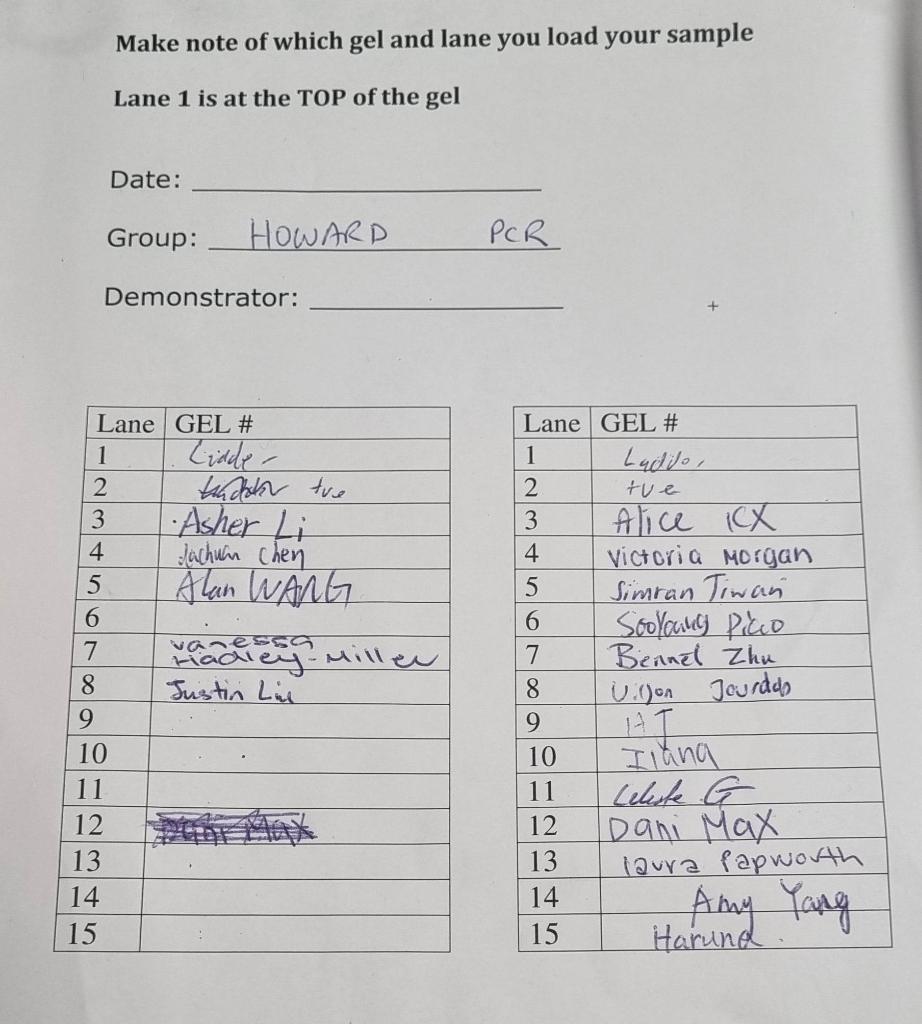 Make note of which gel and lane you load your sample
Lane 1 is at the TOP of the gel
Date:
Group: HOWARD PCR
Demonstrator:
Lane GEL #
1
2 +ve
3 Asher Li
4 Jachuan Chen
5 Alan WANG
6
7 Vanessa
Hadley-Miller
8 Justin Liu
9
10
11
12 Dani Max
13
14
15
Lane GEL #
1 Ladder
2 +ve
3 Alice
4 Victoria Morgan
5 Simran Tiwari
6
7 Zhu
8
9 HJ
10 Ilana
11 Celeste G
12 Dani Max
13 laura Papworth
14 Amy Yang
15 Haruna